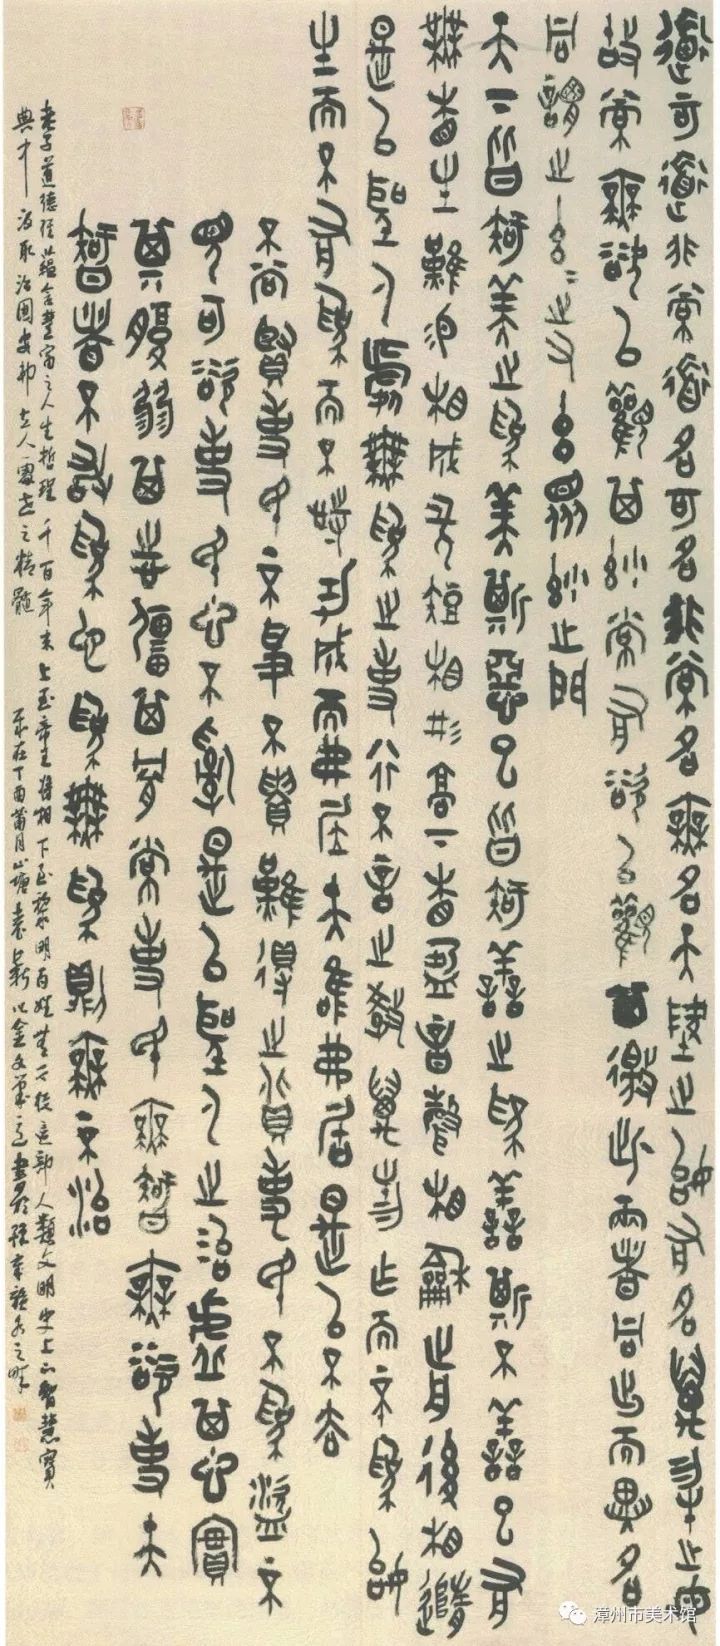 道可道非常道名可名非常名無名天地之始有名萬物之母
故常無欲以觀其妙常有欲以觀其徼此兩者同出而異名
同謂之玄玄之又玄眾妙之門
天下皆知美之為美斯惡已皆知善之為善斯不善已有
無相生難易相成長短相形高下相盈音聲相和前後相隨
是以聖人處無為之事行不言之教萬物作而不為始
生而不有為而不恃功成而弗居夫唯弗居是以不去
不尚賢使民不爭不貴難得之貨使民不為盜不
見可欲使民心不亂是以聖人之治虛其心實
其腹弱其志強其骨常使民無知無欲使夫
智者不敢為也為無為則無不治
老子道德經蘊含豐富之人生哲理千百年來上至帝王將相下至黎明百姓無不從這部人類文明史上的智慧寶
典中汲取治國安邦立人處世之精髓 歲在丁酉蒲月山塘袁新以金文筆意書於之畔
漳州市美术馆